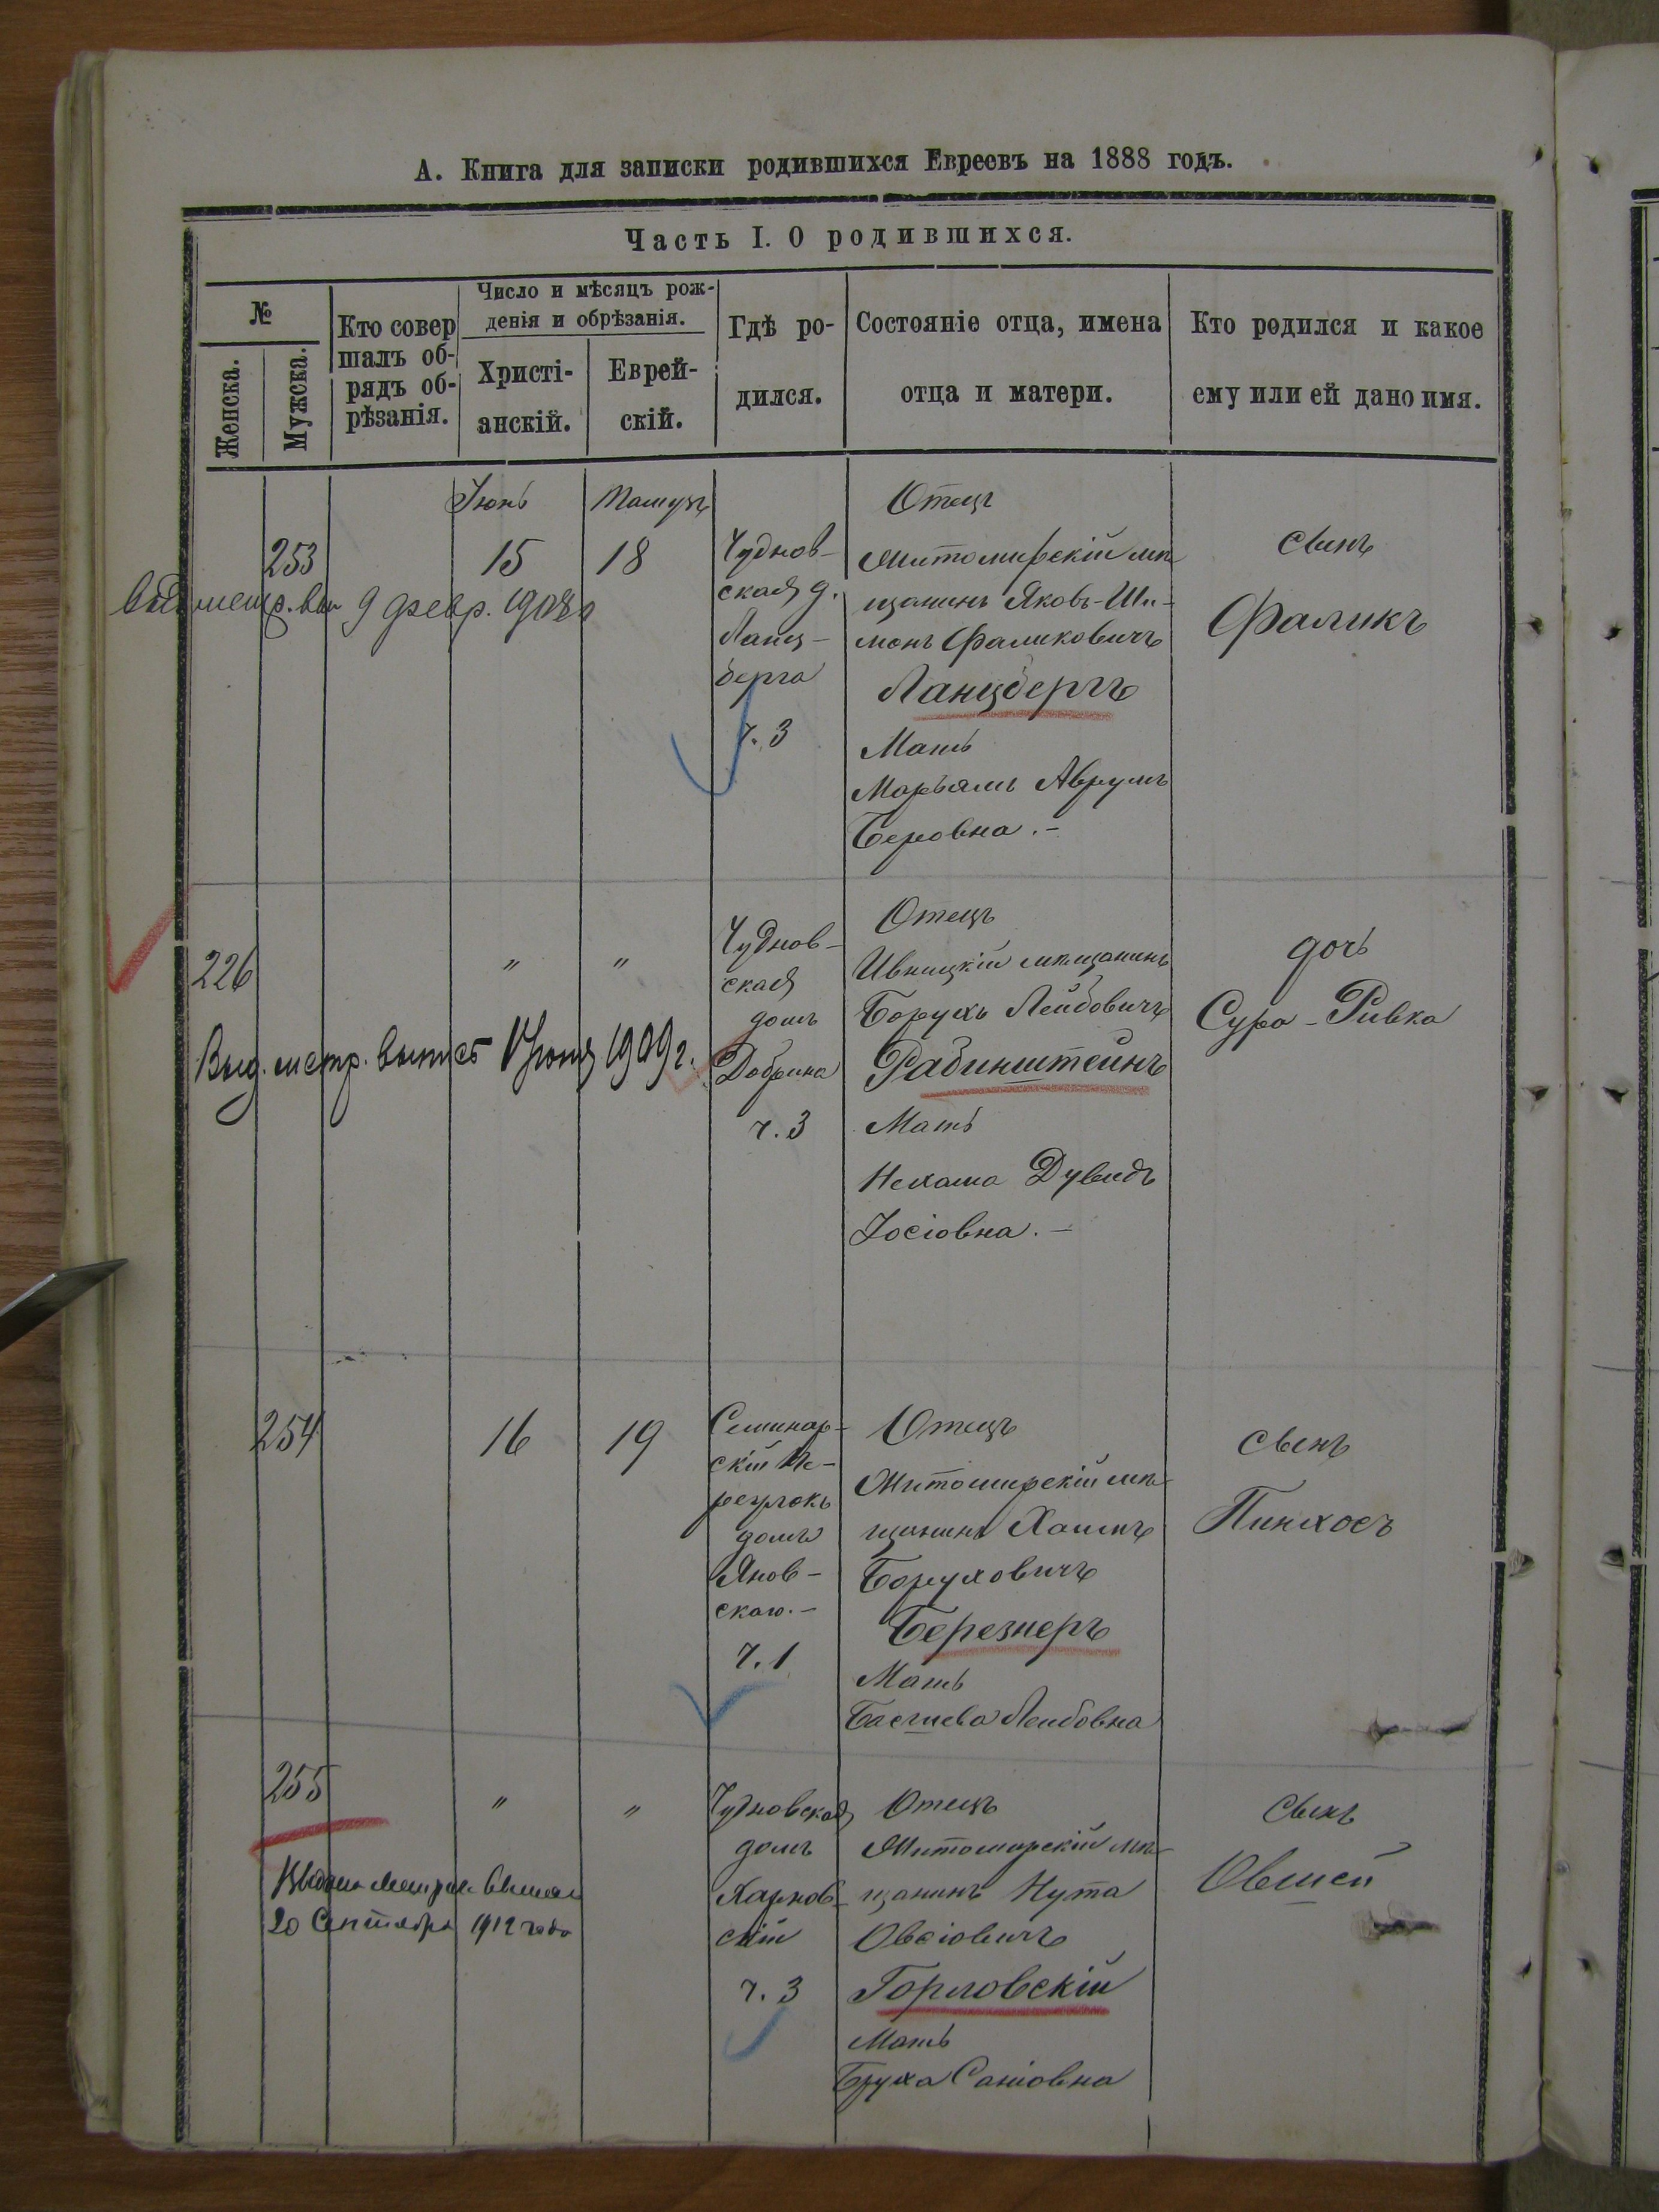 А. Книга для записки родившихся Евреевъ на 1888 годъ.
Часть I. О родившихся.
№
Женска.
Мужска.
Кто совер
шалъ об-
рядъ об-
рѣзанія.
Число и мѣсяцъ рож-
денія и обрѣзанія.
Христі-
анскій.
Еврей-
скій.
Гдѣ ро-
дился.
Состояніе отца, имена
отца и матери.
Кто родился и какое
ему или ей дано имя.
253
Іюнь
15
Тамузъ
18
Чуднов-
ская д.
Ланц-
берга
ч. 3
Отецъ
Житомирскій мѣ-
щанинъ Яковъ-Ши-
монъ Фаликовичъ
Ланцбергъ
Мать
Марьямъ Аврумъ
Беровна.-
сынъ
Фаликъ
9 февр. 1908
226
"
"
Чуднов-
ская
домъ
Добрина
ч. 3
Отецъ
Ивницкій мѣщанинъ
Борухъ Лейбовичъ
Рабинштейнъ
Мать
Нехама Дувидъ
Іосіовна.-
дочь
Сура-Ривка
Выд. метр. выпись 1909 г.
254
16
19
Семинар-
скій Пе-
реулокъ
домъ
Янов-
скаго.-
ч. 1
Отецъ
Житомирскій мѣ-
щанинъ Хаимъ
Боруховичъ
Березнеръ
Мать
Басшева Лейбовна
сынъ
Пинхосъ
255
"
"
Чудновская
домъ
Харнов-
скій
ч. 3
Отецъ
Житомирскій мѣ-
щанинъ Нута
Овсіовичъ
Горловскій
Мать
Бруха Саніовна
сынъ
Овшей
20 Сентября 1912 года